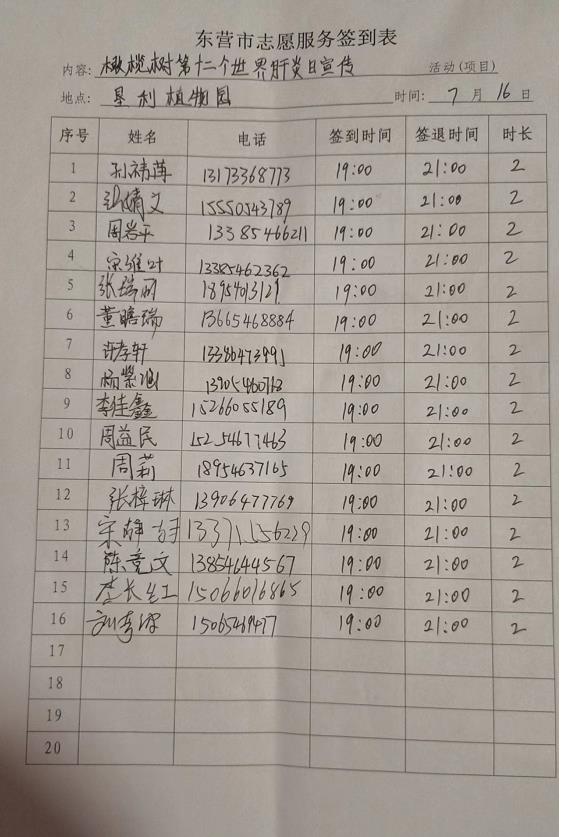 东营市志愿服务签到表
内容: 橄榄树第十二个世界肝炎日宣传 活动(项目)
地点: 垦利植物园 时间: 7 月 16 日
序号 姓名 电话 签到时间 签退时间 时长
1 孙祎萍 13173368773 19:00 21:00 2
2 张婧文 15550543789 19:00 21:00 2
3 周岩平 13385466211 19:00 21:00 2
4 13385462362 19:00 21:00 2
5 张瑞丽 19:00 21:00 2
6 董瞻瑞 13665468884 19:00 21:00 2
7 许孝轩 19:00 21:00 2
8 19:00 21:00 2
9 李佳鑫 15266055189 19:00 21:00 2
10 周益民 15254677463 19:00 21:00 2
11 周莉 18954637165 19:00 21:00 2
12 张梓琳 13906477769 19:00 21:00 2
13 19:00 21:00 2
14 陈竞文 13854644567 19:00 21:00 2
15 李长红 15066016865 19:00 21:00 2
16 19:00 21:00 2
17
18
19
20